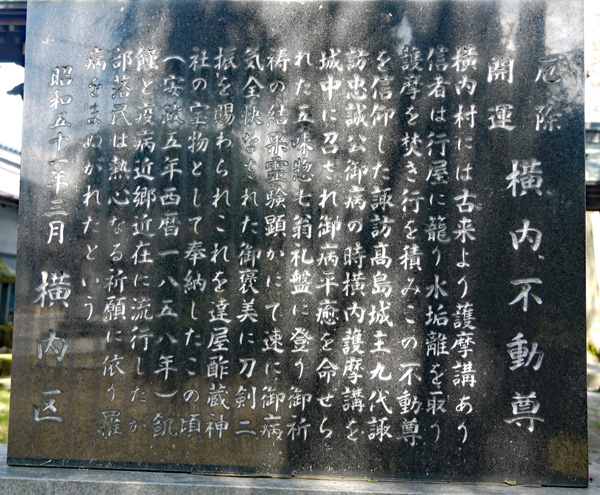 厄除
開運
横内不動尊
横内村には古来より護摩講あり
信者は行屋に籠り水垢離を取り
護摩を焚き行を積みこの不動尊
を信仰した諏訪高島城主九代諏
訪忠誠公御病の時横内護摩講を
城中に召され御病平癒を命せら
れた五味惣七翁礼盤に登り御祈
祷の結果霊験顕かにて速に御病
気全快なされた御褒美に刀剣二
振を賜わられこれを達屋酢蔵神
社の宝物として奉納したこの頃
(安政五年西暦一八五八年)飢
饉と疫病近郷近在に流行したが
部落民は熱心なる祈願に依り羅
病をまぬがれたという
昭和五十一年三月 横内区